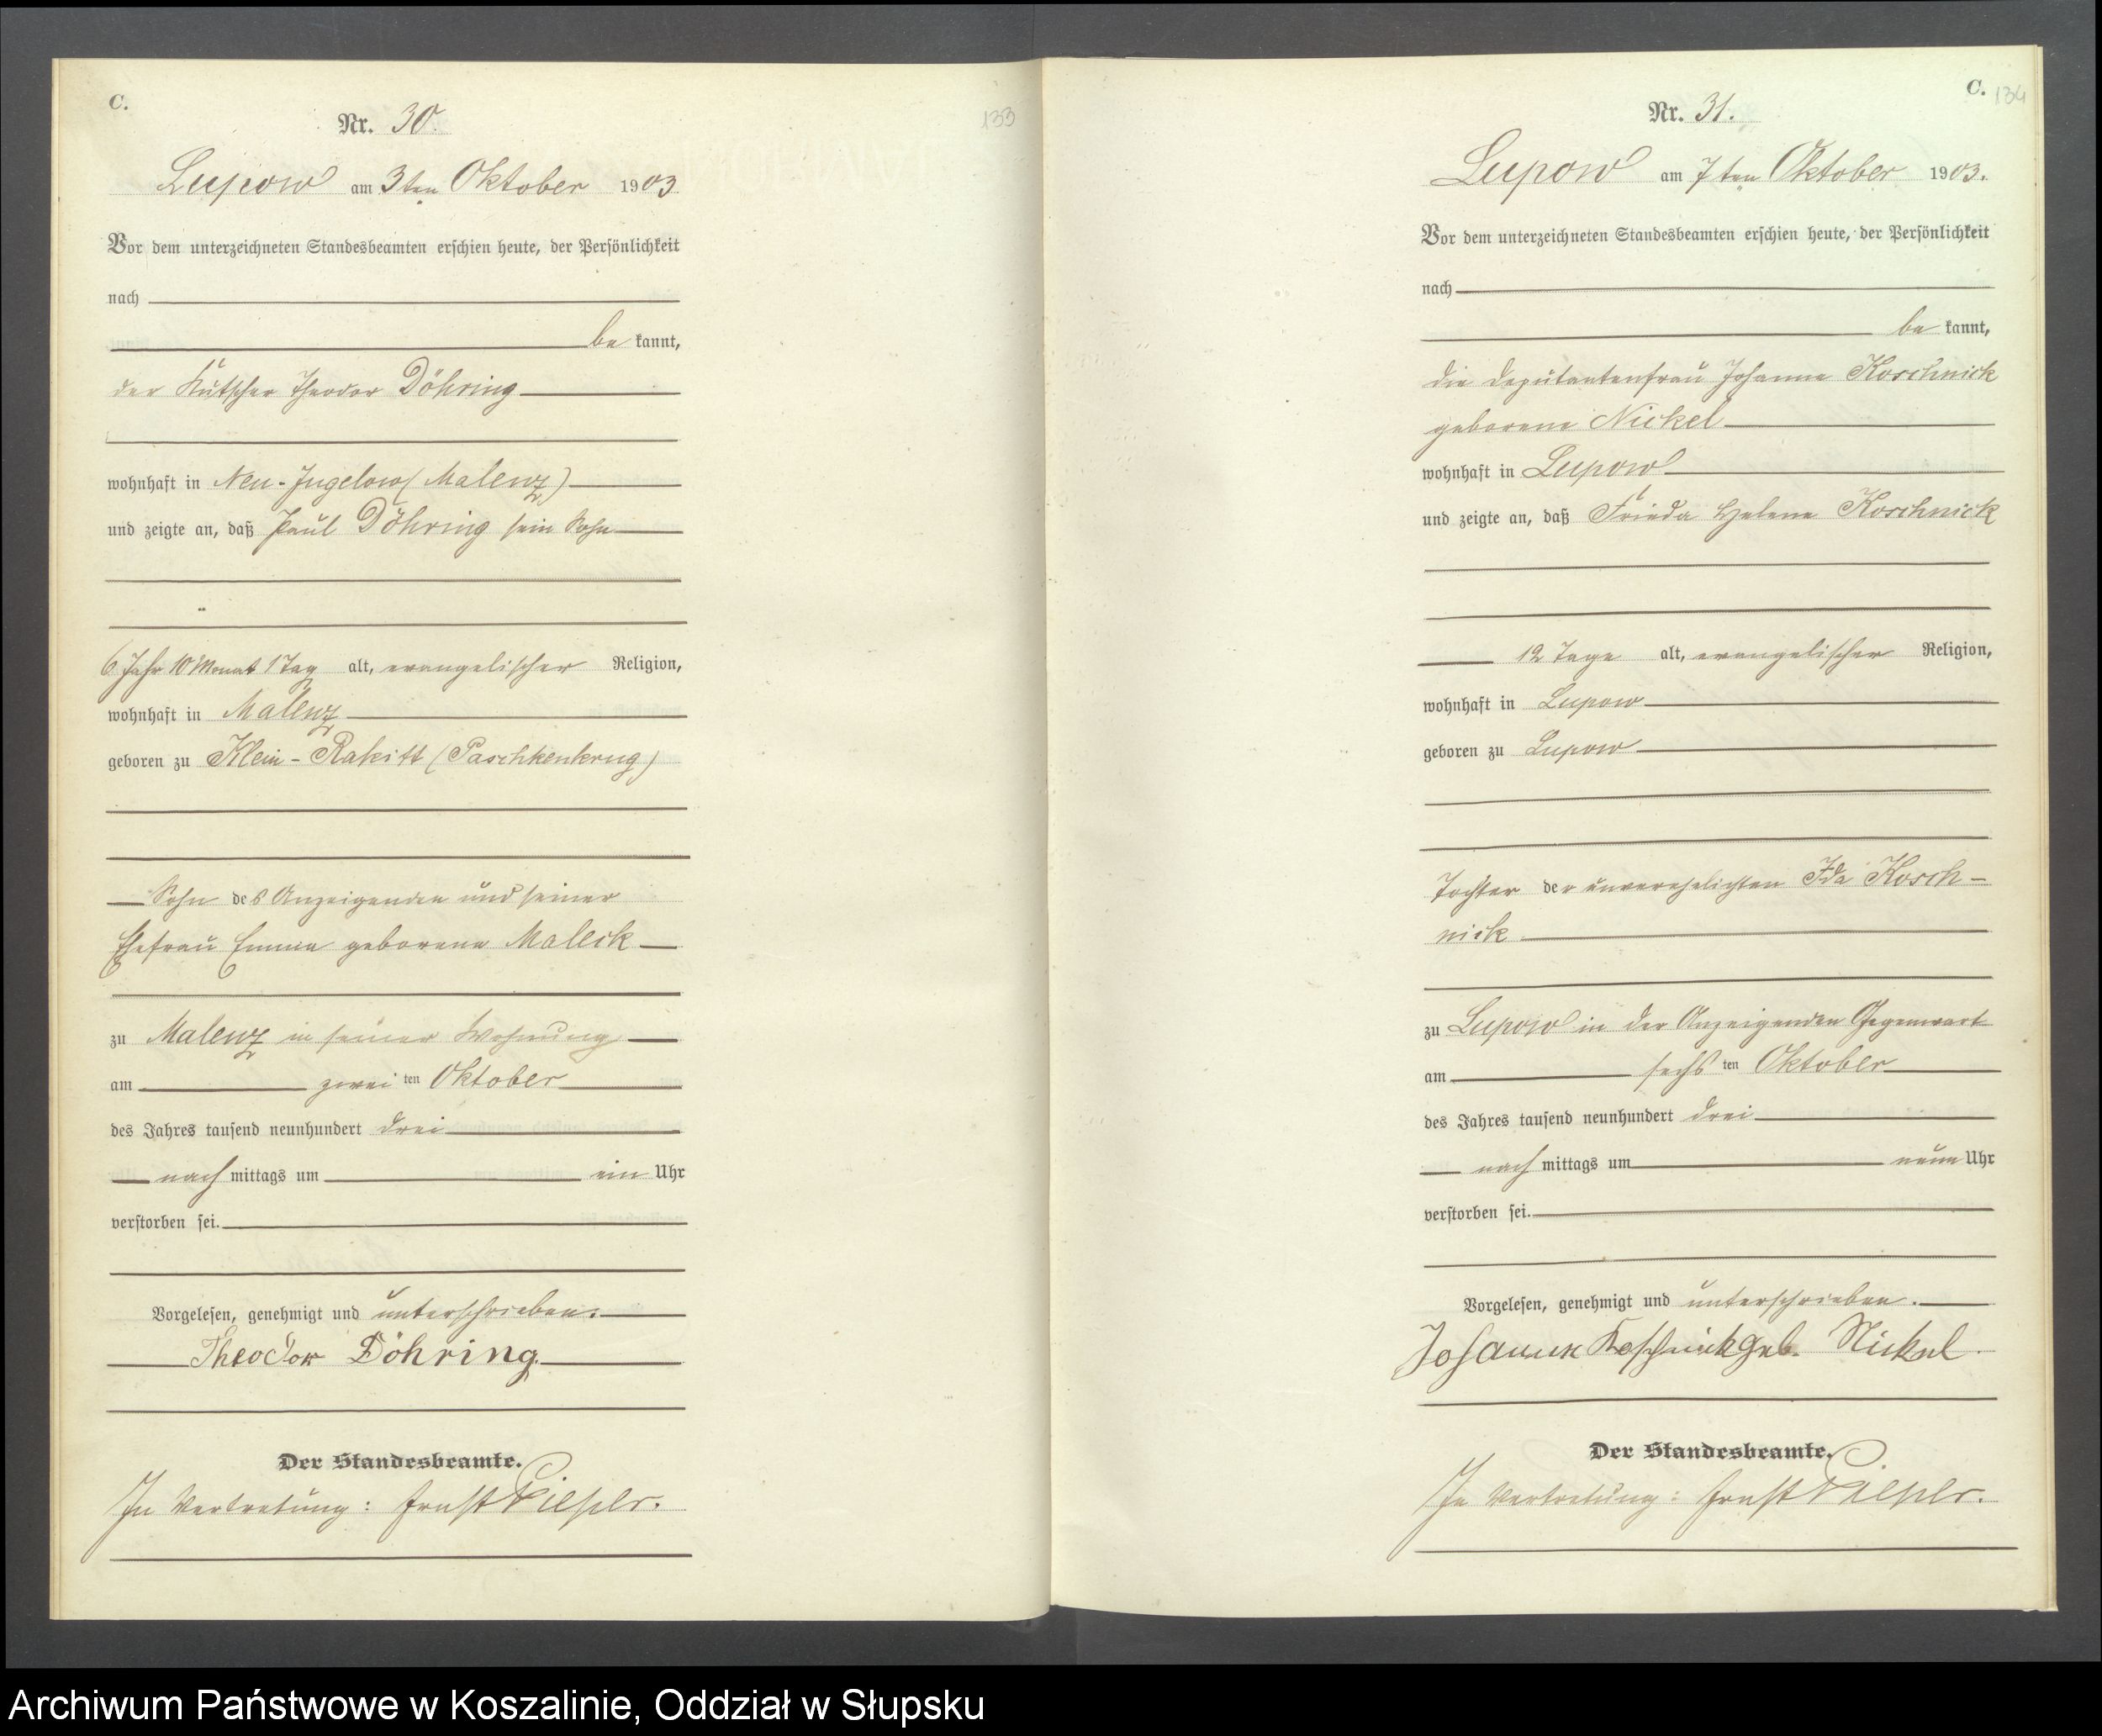 C.
133
Nr. 30.
Lupow am 3ten Oktober 1903
Vor dem unterzeichneten Standesbeamten erschien heute, der Persönlichkeit
nach
be kannt,
der Kutscher Theodor Döhring
wohnhaft in Neu-Jugelow (Malenz)
und zeigte an, daß Paul Döhring sein Sohn
6 Jahr 10 Monat 1 Tag alt, evangelischer Religion,
wohnhaft in Malenz
geboren zu Klein-Rakitt (Paschkenkrug)
Sohn des Anzeigenden und seiner
Ehefrau Emma geborene Maleck
zu Malenz in seiner Wohnung
am zwei ten Oktober
des Jahres tausend neunhundert drei
nach mittags um ein Uhr
verstorben sei.
Vorgelesen, genehmigt und unterschrieben.
Theodor Döhring.
Der Standesbeamte.
In Vertretung: Ernst Piepler.
C.
134
Nr. 31.
Lupow am 7ten Oktober 1903.
Vor dem unterzeichneten Standesbeamten erschien heute, der Persönlichkeit
nach
be kannt,
die Deputantenfrau Johanne Koschnick
geborene Nickel
wohnhaft in Lupow
und zeigte an, daß Frieda Helene Koschnick
12 Tage alt, evangelischer Religion,
wohnhaft in Lupow
geboren zu Lupow
Tochter der unverehelichten Ida Kosch-
nick
zu Lupow in der Anzeigenden Gegenwart
am sechs ten Oktober
des Jahres tausend neunhundert drei
nach mittags um neun Uhr
verstorben sei.
Vorgelesen, genehmigt und unterschrieben.
Johanne Koschnick geb. Nickel.
Der Standesbeamte.
In Vertretung: Ernst Piepler.
Archiwum Państwowe w Koszalinie, Oddział w Słupsku